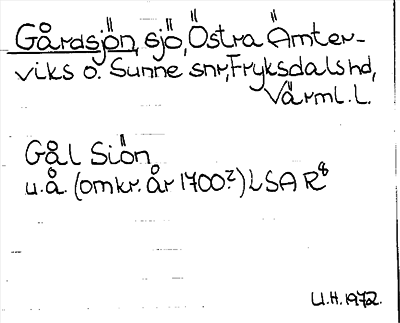 Gårdsjön, sjö, Östra Ämter-
viks o. Sunne snr, Fryksdals hd,
Värml. l.
Gål Siön
u.å. (omkr. år 1700?) LSA R8
U.H. 1972.